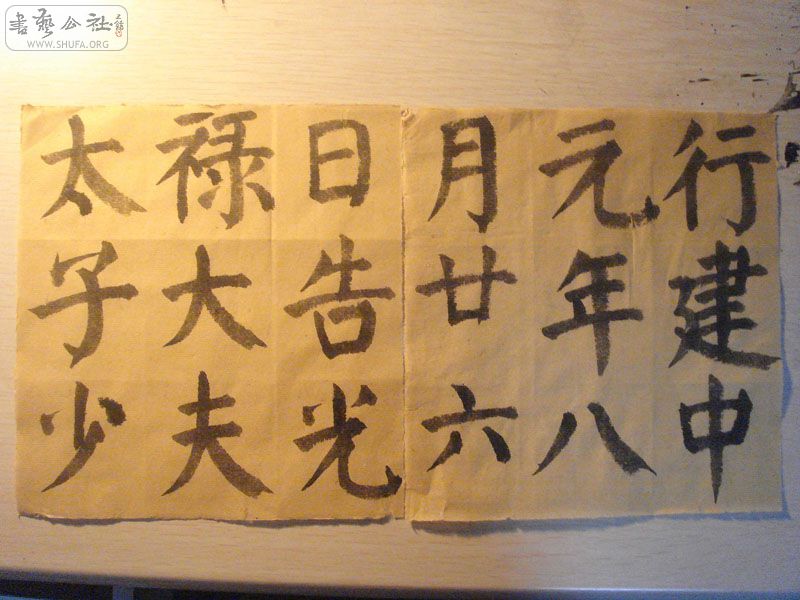 行建中
元年八
月廿六
日告光
禄大夫
太子少
書藝公社
WWW.SHUFA.ORG